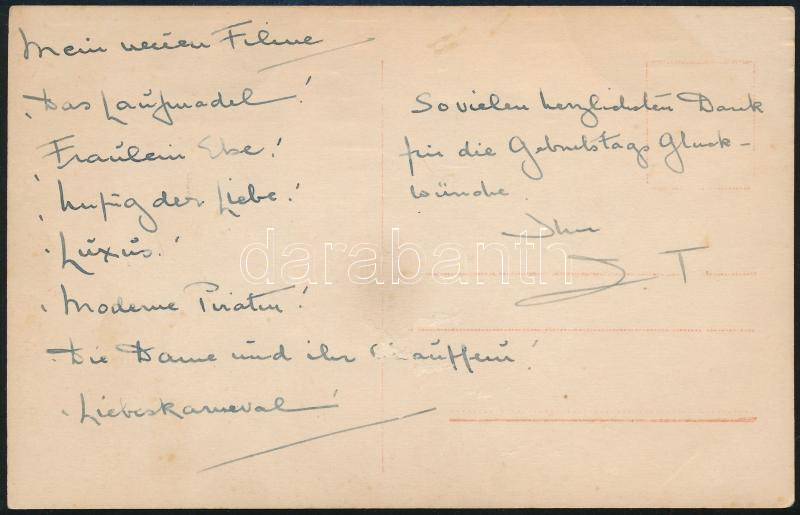 Mein neuen Filme
„Das Laufmadel!
Fraulein Else!
der Liebe!
Luxus!
Moderne Piraten!
Die Dame und ihr Chauffeur!
Liebeskarneval!
So vielen herzlichsten Dank
für die Geburtstags Glück-
wünche.
Ihr
J. T.
darabanth